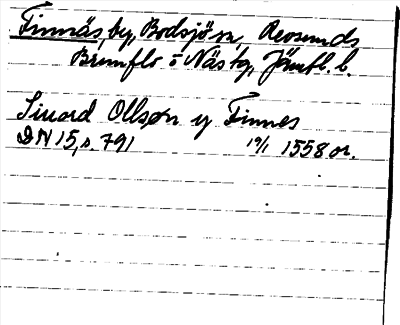 Finnäs, by, Bodsjö sn, Revsunds
Brunflo o Näs tg, Jämtl. l.
Siuord Ollson y Finnes
DN 15, s. 791 19/1 1558 or.